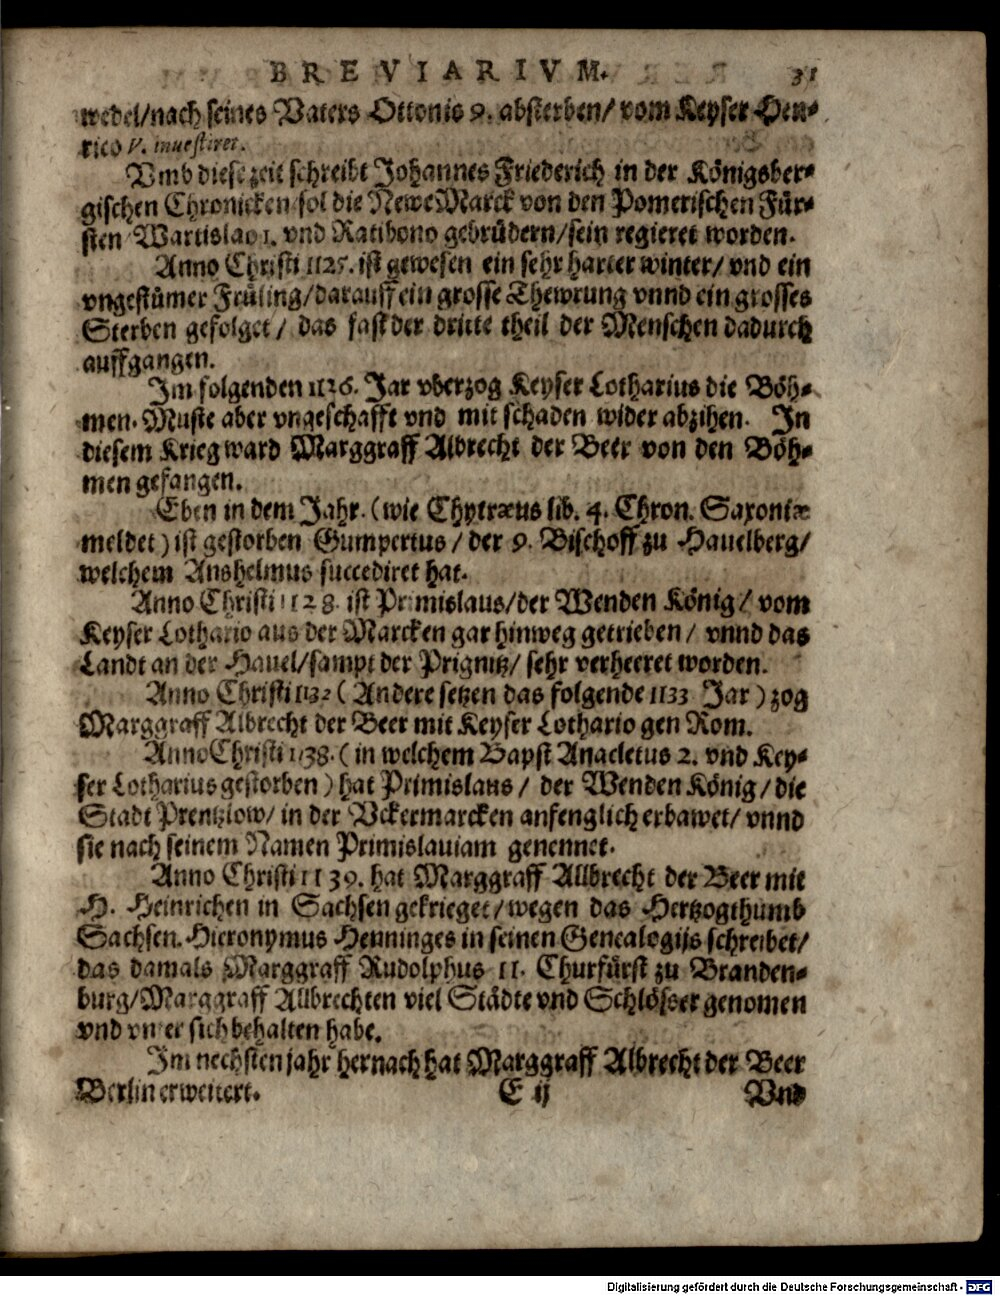 BREVIARIVM. 31
wedel/nach seines Vaters Ottonis 9. absterben/ vom Keyser Hen-
rico V. inuestiret.
Vmb diese zeit schreibt Johannes Friederich in der Königsber-
gischen Chronicken/sol die Newe Marck von den Pomerischen Für-
sten Wartislao 1. vnd Ratibono gebrüdern/sein regieret worden.
Anno Christi 1125. ist gewesen ein sehr harter winter/ vnd ein
vngestümer Früling/darauff ein grosse Thewrung vnnd ein grosses
Sterben gefolget/ das fast der dritte theil der Menschen dadurch
auffgangen.
Im folgenden 1126. Jar vberzog Keyser Lotharius die Böh-
men. Muste aber vngeschafft vnd mit schaden wider abzihen. In
diesem Krieg ward Marggraff Albrecht der Beer von den Böh-
men gefangen.
Eben in dem Jahr. (wie Chytræus lib. 4. Chron. Saxoniæ
meldet) ist gestorben Gumpertus/ der 9. Bischoff zu Hauelberg/
welchem Anshelmus succediret hat.
Anno Christi 1128. ist Primislaus/der Wenden König/ vom
Keyser Lothario aus der Marcken gar hinweg getrieben/ vnnd das
Landt an der Hauel/sampt der Prignitz/ sehr verheeret worden.
Anno Christi 1132 (Andere setzen das folgende 1133 Jar) zog
Marggraff Albrecht der Beer mit Keyser Lothario gen Rom.
Anno Christi 1138. (in welchem Bapst Anacletus 2. vnd Key-
ser Lotharius gestorben) hat Primislaus/ der Wenden König/die
Stadt Prentzlow/ in der Vckermarcken anfenglich erbawet/ vnnd
sie nach seinem Namen Primislauiam genennet.
Anno Christi 1139. hat Marggraff Allbrecht der Beer mit
H. Heinrichen in Sachsen gekrieget/wegen das Hertzogthumb
Sachsen. Hieronymus Henninges in seinen Genealogijs schreibet/
das damals Marggraff Rudolphus II. Churfürst zu Branden-
burg/Marggraff Allbrechten viel Städte vnd Schlösser genomen
vnd vnter sich behalten habe.
Im nechsten jahr hernach hat Marggraff Albrecht der Beer
Berlin erweitert. E ij Vnd
Digitalisierung gefördert durch die Deutsche Forschungsgemeinschaft - DFG